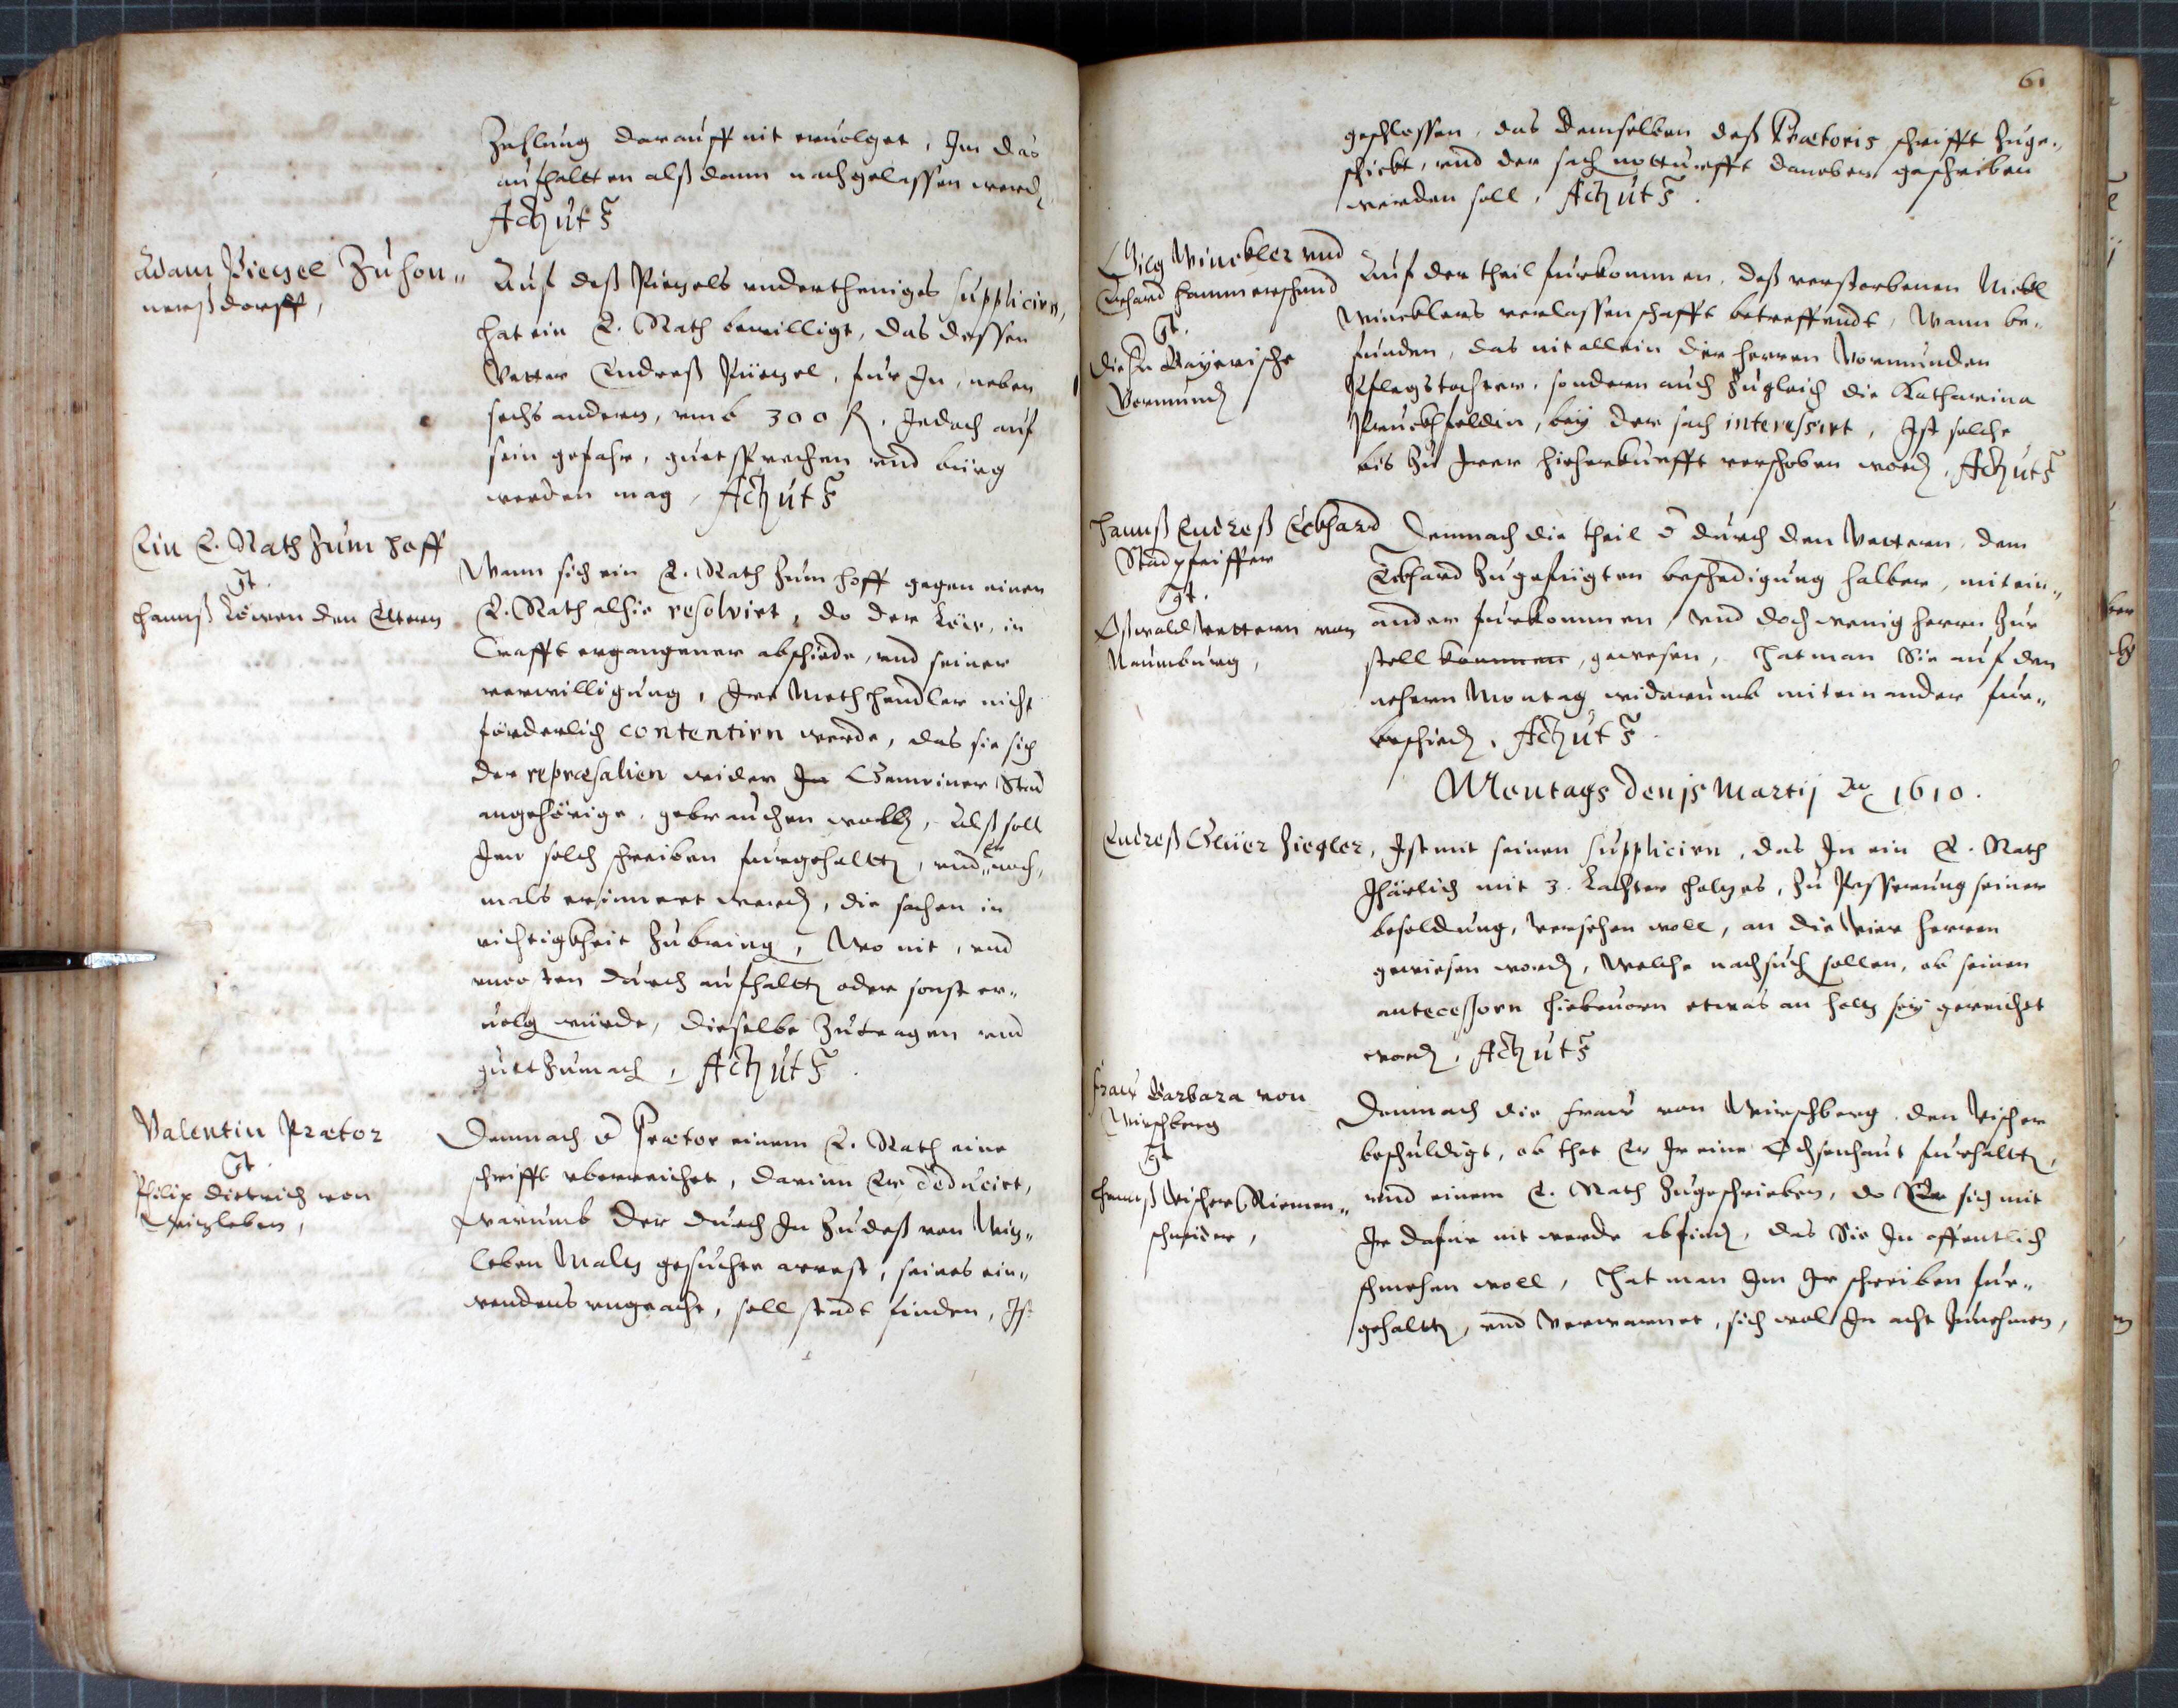 Zehlung darauff nit ervolget, Im das
aufhaltten alß dann nachgelassen werd
Act ut s
Adam Piegel Zu hon„
nerßdorff,
Auf deß Piegels undertheniges supplicirn,
hat ein E. Rath bewilligt, das dessen
Vetter Endreß Püegel, fur In, neben
sechs andern, umb 300 fl, Jedoch auf
sein gefahr, guet sprechen und bürg
werden mag, Act ut s
Ein E. Rath zum Hoff
Ct.
Hannß Löwen den Eltern
Wann sich ein E. Rath zum Hoff gegen einen
E. Rath alhie resolvirt, do der Löw, in
Crafft ergangener abschiede, und seiner
verwilligung, Ire Methhendler nicht
förderlich contentirn werde, das sie sich
der repræsalien wider In Gemeiner Stad
angehörige, gebrauchen wolt, Alß soll
Im solch schreiben furgehaltt, und er noch„
mals erinnert werd, die sachen in
richtigkheit zubring, Wo nit, und
uncosten durch aufhaltt oder sonst er„
uolg würde, dieselbe zutragen und
gutt zumach, Act ut s.
Valentin Prætor
Ct.
Philip Dietrich von
Witzleben,
Demnach d Prætor einem E. Rath eine
schrifft uberreichet, darinn Er deducirt,
warumb der durch In zu deß von Witz„
leben Maltz gesuchte arrest, seines ein„
wendens ungeacht, soll stadt finden, Ist
61
geschlossen, das demselben deß Prætoris schrifft zuge„
schickt, und der sach notturfft daneben geschriben
werden soll, Act ut s.
Gilg Winckler und
Erhard Hammerschmid
Ct.
Die H Bayerische
Vormund
Auf der theil furkommen, deß verstorbenen Nickl
Wincklers verlassenschafft betreffendt, Wann be„
funden, das nit allein der Herren Vormunden
Pflegstochter, sondern auch zugleich die Katharina
Pruckhfeldin, bey der sach interessirt, Ist solche
bis zu Irer hieherkunfft verschoben word, Act ut s
Hannß Endreß Eckhard
Stadpfeiffer
Ct.
Oßwald Vettern von
Naumburg,
Demnach die theil d durch den Vettern, dem
Eckhard zugefügten beschedigung halber, mitein„
ander furkommen, und doch wenig Herrn zur
stell kommen, gewesen, Hat man Sie auf den
nehern Montag widerumb miteinander fur„
beschied, Act ut s.
Montags den 5 Martij Ao 1610.
Endreß Glüer Ziegler,
Ist mit seinen supplicirn, das In ein E. Rath
Jharlich mit 3. Lachter holtzes, zu Pesserung seiner
besoldung, versehen woll, an die Vier Herren
gewiesen word, welche nachsuch sollen, ob seinen
antecessorn hiebevorn etwas an holtz sey gereicht
word, Act ut s
Fraw Barbara von
Wirschberg
Ct
Hannß Vischer Riemen„
schneider,
Demnach die Fraw von Wirschberg, den Vischer
beschuldigt, ob thet Er Ir eine Ochsenhaut furhaltt,
und einem E. Rath zugeschrieben, do Er sich mit
Ir dafur nit werde abfind, das Sie In offentlich
schmehen woll, Hat man Im Ir schreiben fur„
gehaltt, und verwarnet, sich wol In acht zunehmen,